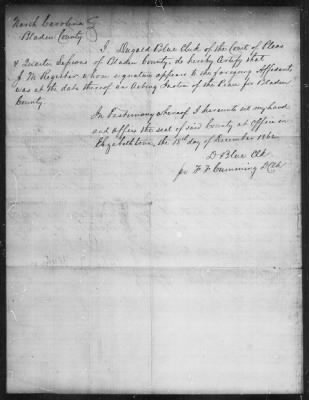 North Carolina
Bladen County
I, Dugald Blue Clerk of the Court of Pleas
& Quarter Sessions of Bladen County, do hereby Certify that
J. M. Register whose signature appears to the foregoing Affidavits
was at the date thereof an Acting Justice of the Peace for Bladen
County
In Testimony whereof I hereunto set my hand
and affix the seal of said County at Office in
Elizabethtown, the day of December 1862
D Blue Clk
pr F F Cumming D Clk